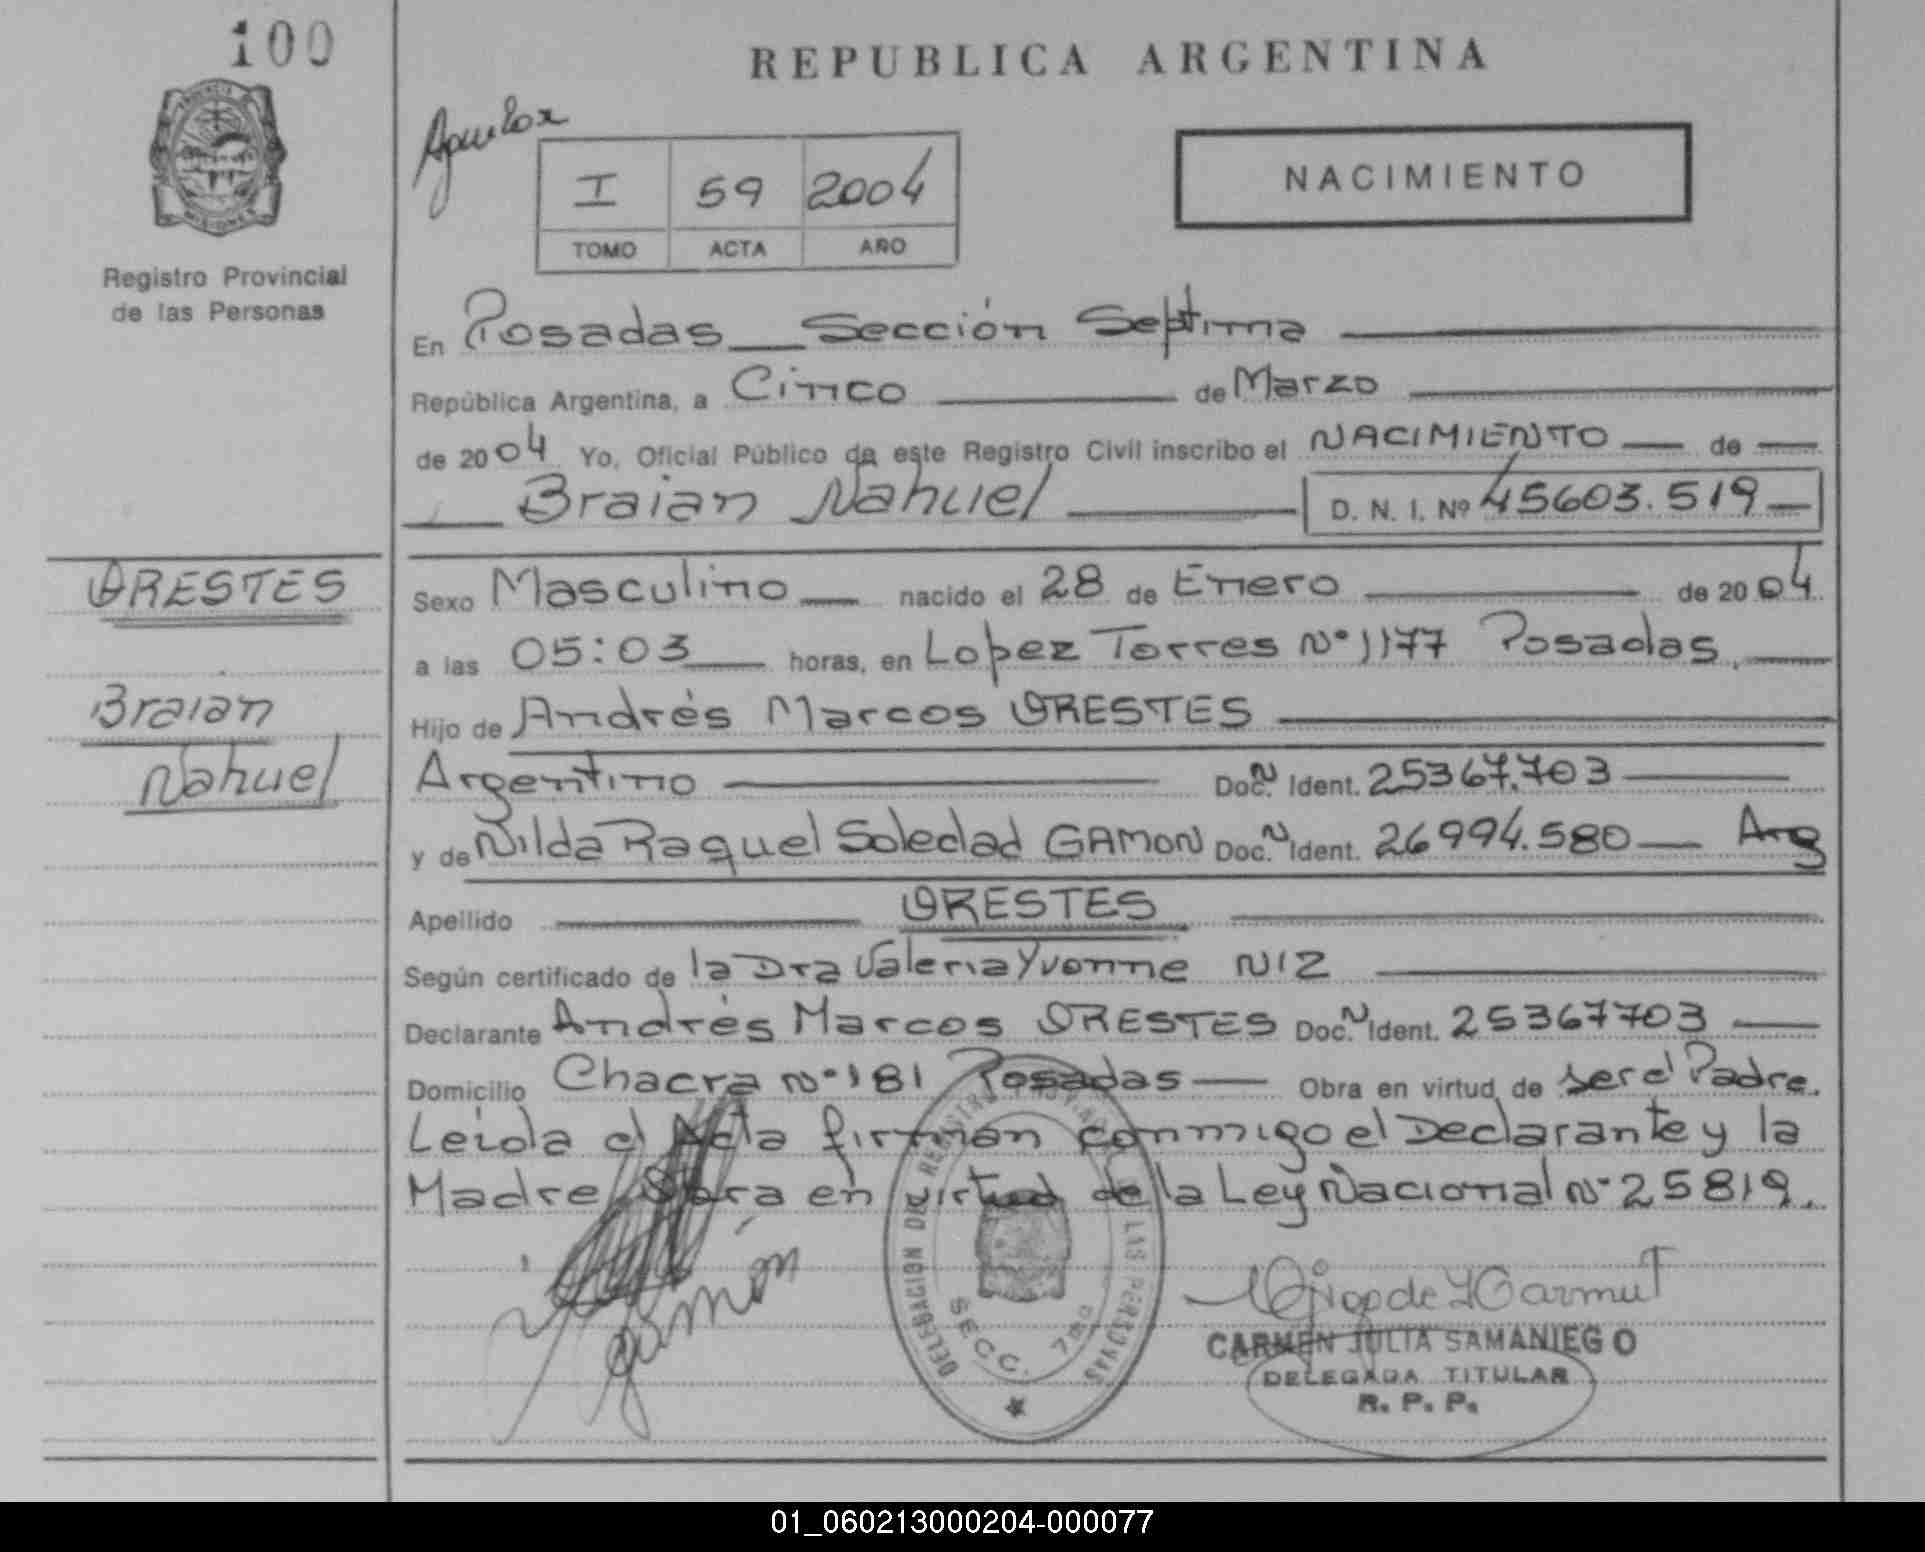 100
REPUBLICA ARGENTINA
PROVINCIA DE
MISIONES
Registro Provincial
de las Personas
I 59 2004
TOMO ACTA AÑO
NACIMIENTO
En Posadas Sección Septima
República Argentina, a Cinco de Marzo
de 2004 Yo, Oficial Público de este Registro Civil inscribo el NACIMIENTO de
Braian Nahuel D. N. I. Nº 45603.519
ORESTES
Braian
Nahuel
Sexo Masculino nacido el 28 de Enero de 2004
a las 05:03 horas, en Lopez Torres Nº 1177 Posadas.
Hijo de Andrés Marcos ORESTES
Argentino Doc. N Ident. 25367.703
y de Nilda Raquel Soledad GAMON Doc. N Ident. 26994.580 Arg
Apellido ORESTES
Según certificado de la Dra Valeria Yvonne NIZ
Declarante Andrés Marcos ORESTES Doc. N Ident. 25367703
Domicilio Chacra Nº 181 Posadas Obra en virtud de ser el Padre.
Leida el Acta firman conmigo el Declarante y la
Madre Obra en virtud de la Ley Nacional Nº 25819.
gamón
DELEGACION DEL REGISTRO PROVINCIAL DE LAS PERSONAS
SECC. 7ma
CARMEN JULIA SAMANIEGO
DELEGADA TITULAR
R. P. P.
01_060213000204-000077